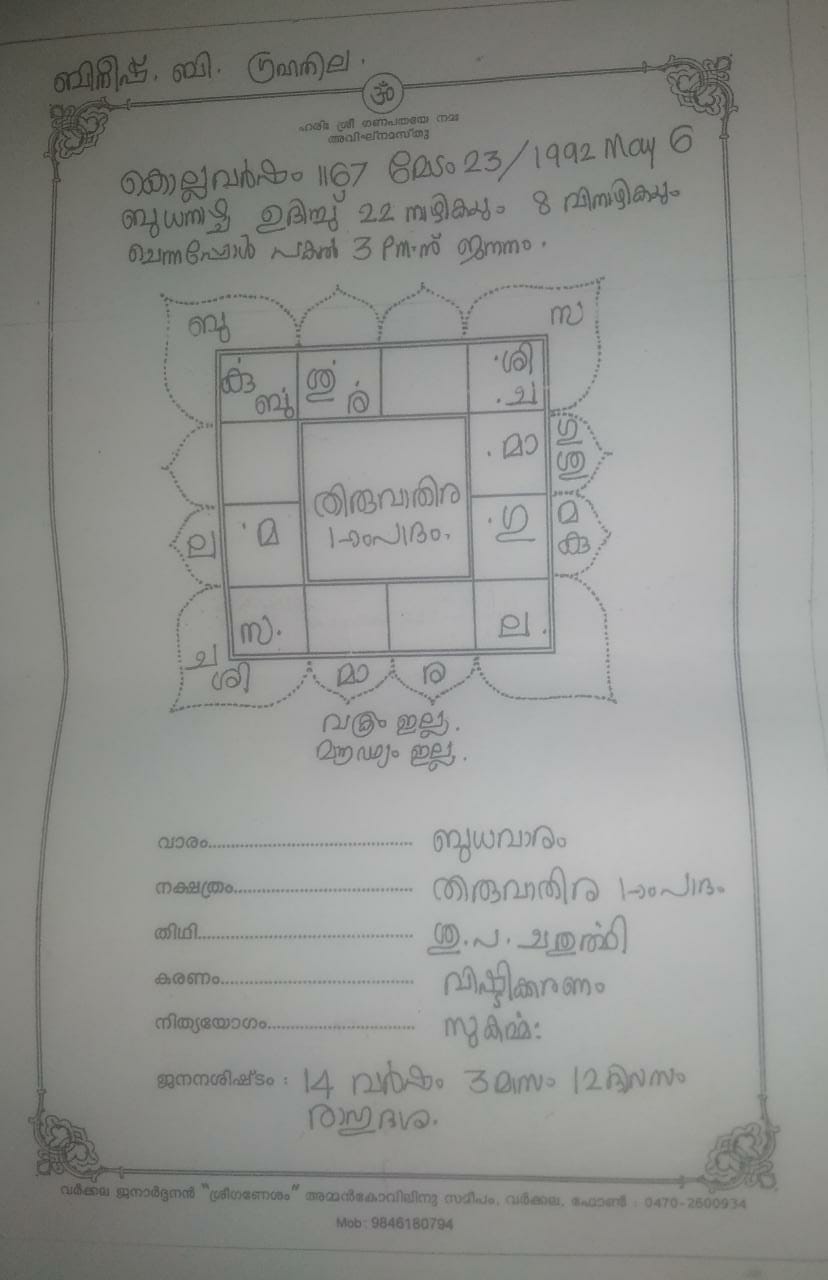 ബിനീഷ്. ബി. ഗ്രഹനില.
ഹരിഃ ശ്രീ ഗണപതയേ നമഃ
അവിഘ്നമസ്തു
കൊല്ലവർഷം 1167 മേടം 23/1992 May 6
ബുധനാഴ്ച ഉദിച്ചു് 22 നാഴികയും 8 വിനാഴികയും
ചെന്നപ്പോൾ പകൽ 3 Pm.ന് ജനനം.
ബു സ
കു ശു ശി
ബു ര ച
മാ ഗു ശു
തിരുവാതിര
1-ാംപാദം.
ല മ ഗു മ കു
സ ല
ച ശി മാ ര
വക്രം ഇല്ല.
മൗഢ്യം ഇല്ല.
വാരം ബുധവാരം
നക്ഷത്രം തിരുവാതിര 1-ാംപാദം
തിഥി ശു.പ. ചതുർത്ഥി
കരണം വിഷ്ടിക്കരണം
നിത്യയോഗം സുകർമ്മഃ
ജനനശിഷ്ടം : 14 വർഷം 3 മാസം 12 ദിവസം
രാഹുദശ.
വർക്കല ജനാർദ്ദനൻ "ശ്രീഗണേശം" അമ്മൻകോവിലിനു സമീപം, വർക്കല, ഫോൺ : 0470-2600934
Mob: 9846180794